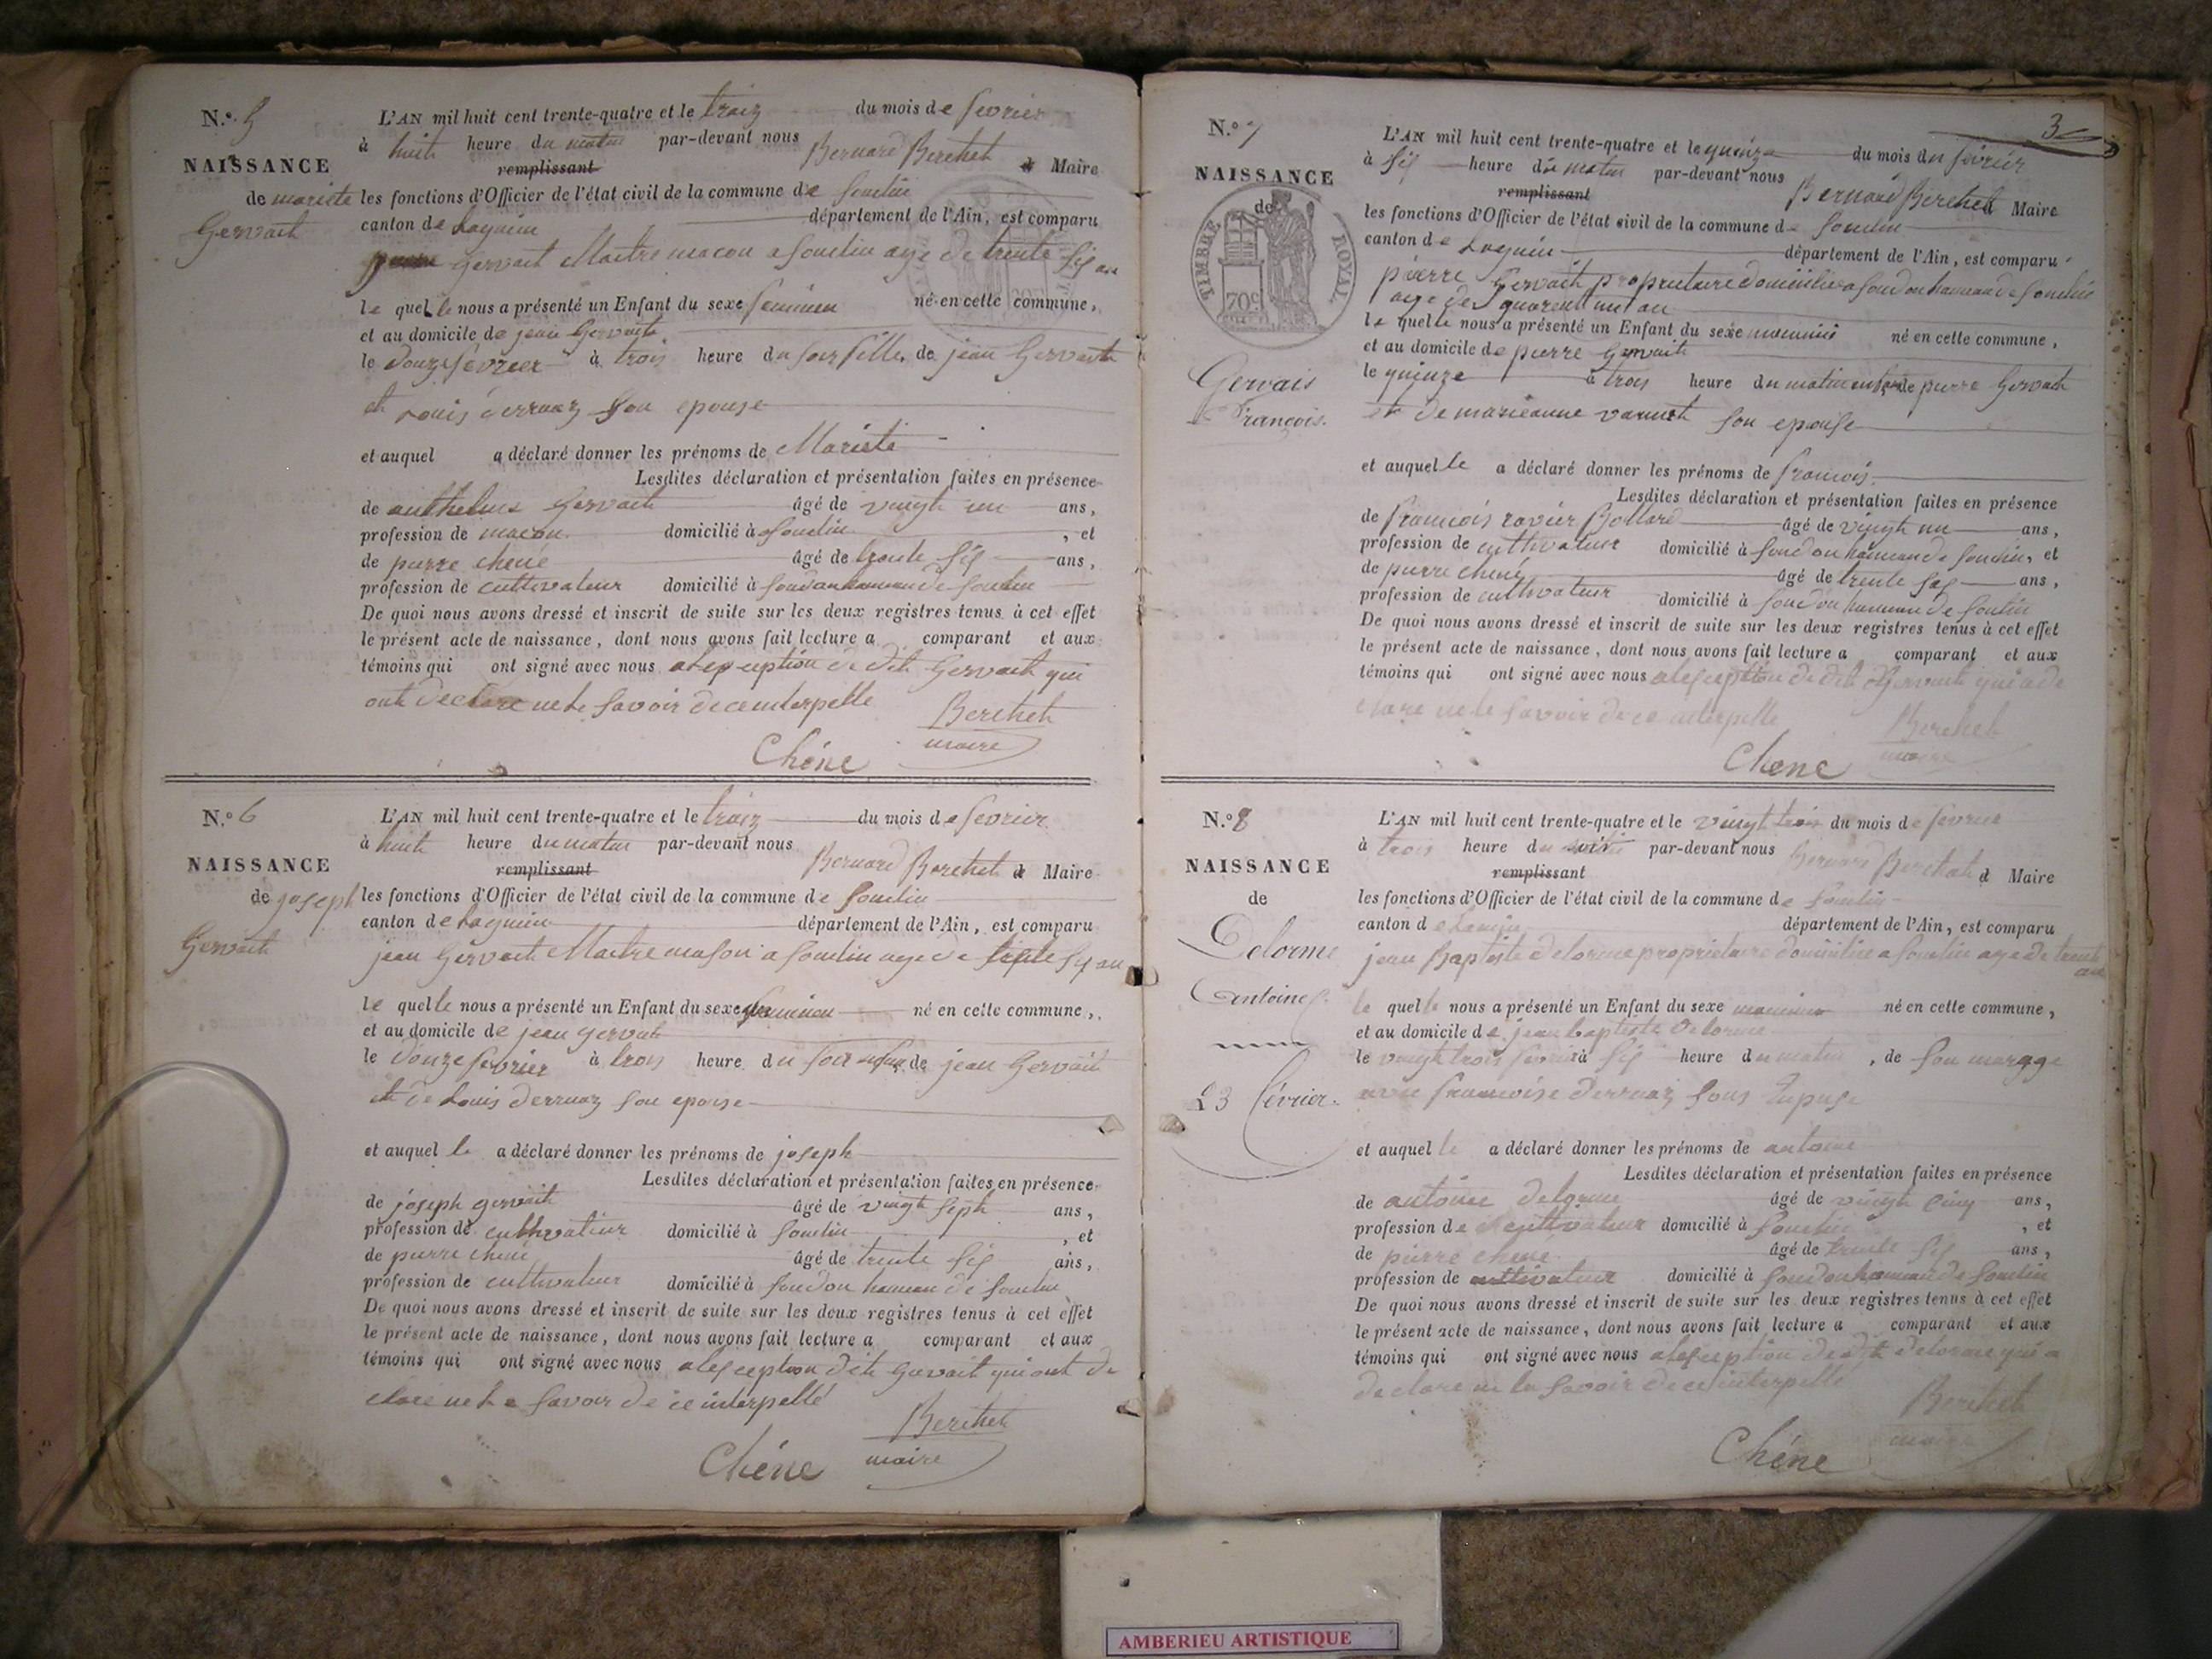 N.° 5
NAISSANCE
de mariete
Gervait
L'AN mil huit cent trente-quatre et le traiz du mois de fevrier
à huit heure du matin par-devant nous Bernard Berchet d Maire
remplissant
les fonctions d'Officier de l'état civil de la commune de Souclin
canton de Lagnieu département de l'Ain, est comparu
Gervait Maitre macon a Souclin age de trente six an
le quel le nous a présenté un Enfant du sexe feminin né en cette commune,
et au domicile de jean Gervait
le douze février à trois heure du soir fille, de jean Gervait
et Louis derruaz son epouse
et auquel a déclaré donner les prénoms de Mariete
Lesdites déclaration et présentation faites en présence
de anthelme Gervait âgé de vingt un ans,
profession de macon domicilié à Souclin, et
de pierre chene âgé de trente six ans,
profession de cultivateur domicilié à Soudon hameau de Souclin
De quoi nous avons dressé et inscrit de suite sur les deux registres tenus à cet effet
le présent acte de naissance, dont nous avons fait lecture a comparant et aux
témoins qui ont signé avec nous a lexception de dit Gervait qui
ont declare ne le savoir de ce interpelle
Berchet
maire
Chêne
N.° 6
NAISSANCE
de joseph
Gervait
L'AN mil huit cent trente-quatre et le traiz du mois de fevrier
à huit heure du matin par-devant nous Bernard Berchet d Maire
remplissant
les fonctions d'Officier de l'état civil de la commune de Souclin
canton de Lagnieu département de l'Ain, est comparu
jean Gervait Maitre mason a Souclin age de trente six an
le quel le nous a présenté un Enfant du sexe né en cette commune,
et au domicile de jean Gervait
le douze fevrier à trois heure du soir de jean Gervait
et de Louis derruaz son epouse
et auquel le a déclaré donner les prénoms de joseph
Lesdites déclaration et présentation faites en présence
de joseph gervait âgé de vingt sept ans,
profession de cultivateur domicilié à Souclin, et
de pierre chene âgé de trente six ans,
profession de cultivateur domicilié à Soudon hameau de Souclin
De quoi nous avons dressé et inscrit de suite sur les deux registres tenus à cet effet
le présent acte de naissance, dont nous avons fait lecture a comparant et aux
témoins qui ont signé avec nous a lexception dit Gervait qui ont de
clare ne le savoir de ce interpellé
Berchet
maire
Chêne
3
N.° 7
NAISSANCE
de
TIMBRE ROYAL
70c
Gervais
François.
L'AN mil huit cent trente-quatre et le quinze du mois du février
à six heure du matin par-devant nous Bernard Berchet d Maire
remplissant
les fonctions d'Officier de l'état civil de la commune de Souclin
canton de Lagnieu département de l'Ain, est comparu
pierre Gervait propriétaire domicilie a Soudon hameau de Souclin
age de quarent un an
le quel le nous a présenté un Enfant du sexe masculin né en cette commune,
et au domicile de pierre Gervait
le quinze à trois heure du matin de pierre Gervait
et de marieanne son epouse
et auquel le a déclaré donner les prénoms de francois
Lesdites déclaration et présentation faites en présence
de francois ravier Bollard âgé de vingt un ans,
profession de cultivateur domicilié à Soudon hameau de Souclin, et
de pierre chene âgé de trente six ans,
profession de cultivateur domicilié à Soudon hameau de Souclin
De quoi nous avons dressé et inscrit de suite sur les deux registres tenus à cet effet
le présent acte de naissance, dont nous avons fait lecture a comparant et aux
témoins qui ont signé avec nous a lexception de dit Gervait qui a de
clare ne le savoir de ce interpelle
Berchet
maire
Chene
N.° 8
NAISSANCE
de
Delorme
Antoine
23 février.
L'AN mil huit cent trente-quatre et le vingt trois du mois de fevrier
à trois heure du par-devant nous Bernard Berchet d Maire
remplissant
les fonctions d'Officier de l'état civil de la commune de Souclin
canton de Lagnieu département de l'Ain, est comparu
jean Baptiste delorme propriétaire domicilie a Souclin age de trente
an
le quel le nous a présenté un Enfant du sexe masculin né en cette commune,
et au domicile de jean baptiste delorme
le vingt trois fevrier à six heure du matin, de son
avec francoise derruaz
et auquel le a déclaré donner les prénoms de antoine
Lesdites déclaration et présentation faites en présence
de antoine delorme âgé de vingt cinq ans,
profession de cultivateur domicilié à Souclin, et
de pierre chene âgé de trente six ans,
profession de cultivateur domicilié à Soudon hameau de Souclin
De quoi nous avons dressé et inscrit de suite sur les deux registres tenus à cet effet
le présent acte de naissance, dont nous avons fait lecture a comparant et aux
témoins qui ont signé avec nous a lexception de dit delorme qui a
declare ne le savoir de ce interpellé
Berchet
maire
Chêne
AMBERIEU ARTISTIQUE